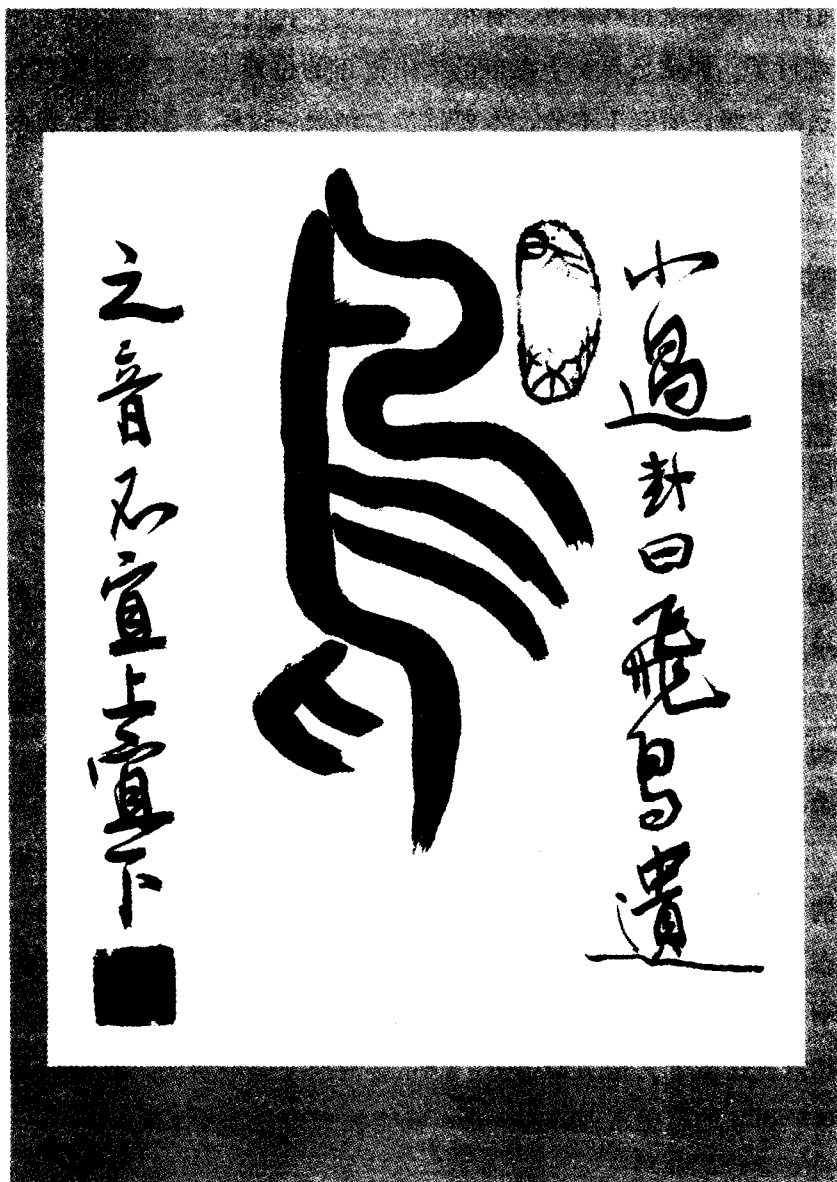 小過卦曰飛鳥遺
鳥
之音不宜上宜下